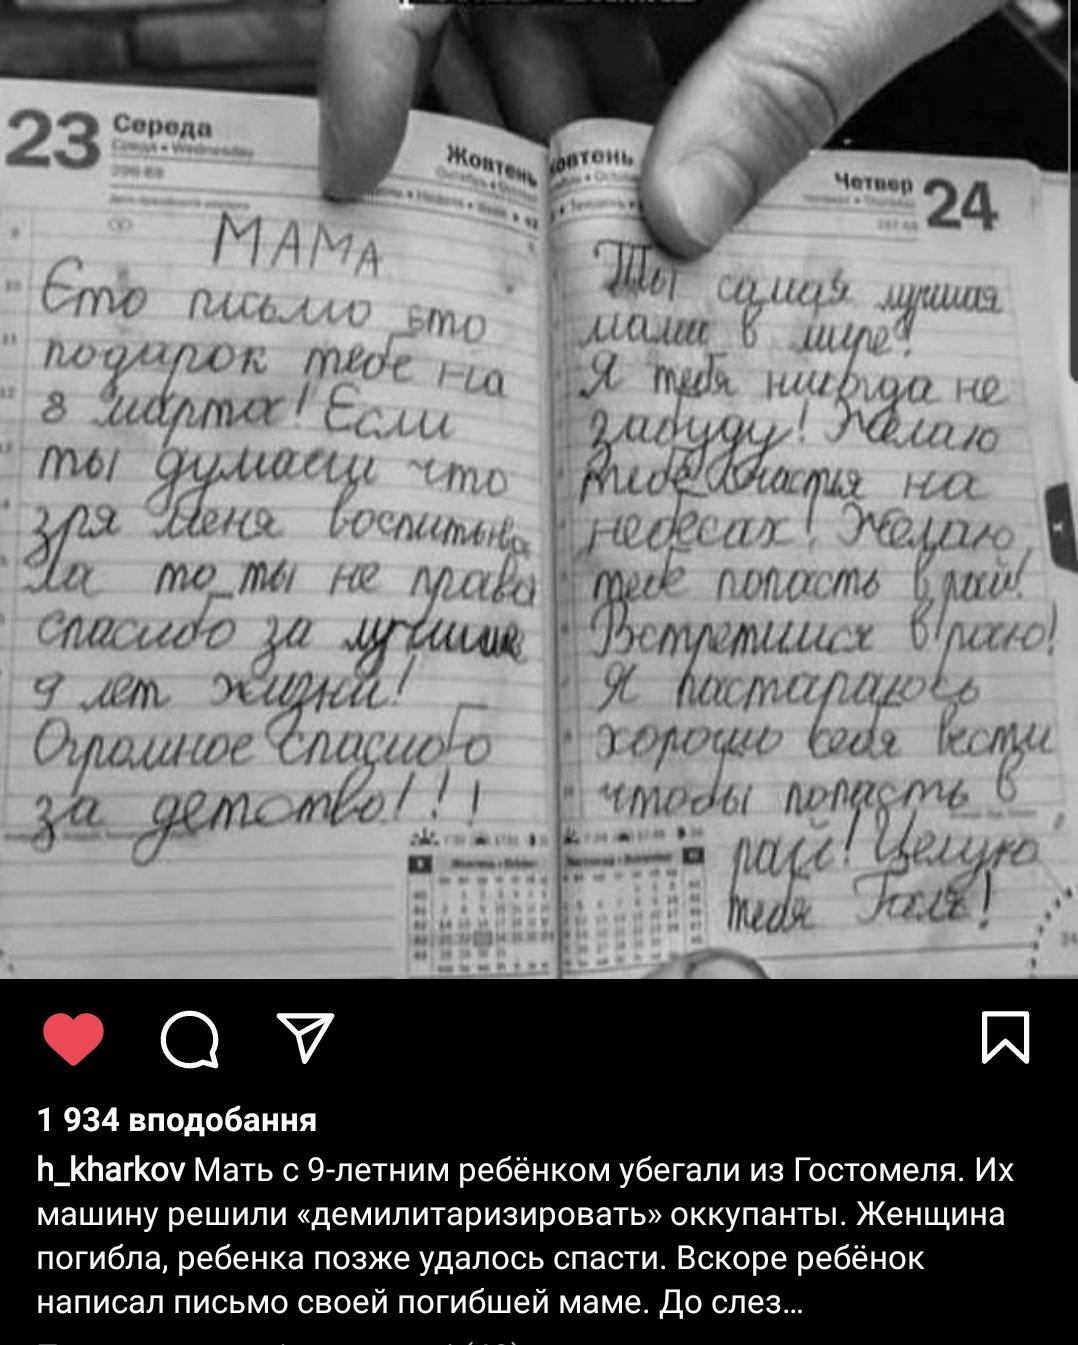 23 Середа
Среда • Wednesday
Жовтень
МАМА
Єто письмо єто
подарок тебе на
8 марта! Если
ты думаеш что
зря меня воспитыва
ла то ты не права
спасибо за лучшие
9 лет жизни!
Огромное спасибо
за детство!!!
Жовтень
Четвер 24
Ты самая лучшая
мама в мире!
Я тебя никогда не
забуду! Желаю
тебе счастья на
небесах! Желаю
тебе попасть в рай!
Встретимся в раю!
Я пастараюсь
хорошо себя вести
чтобы попасть в
рай! Целую
тебя Галя!
1 934 вподобання
h_kharkov Мать с 9-летним ребёнком убегали из Гостомеля. Их
машину решили «демилитаризировать» оккупанты. Женщина
погибла, ребенка позже удалось спасти. Вскоре ребёнок
написал письмо своей погибшей маме. До слез...